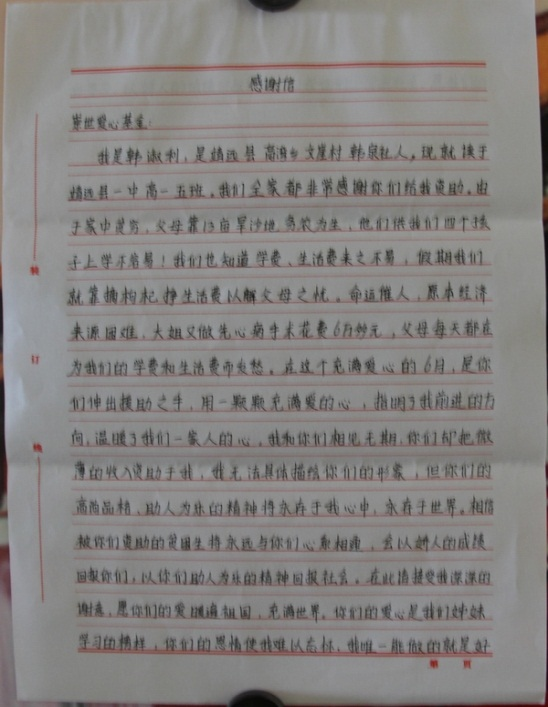 感谢信
崇世爱心基金:
我是韩淑利,是靖远县高湾乡文崖村韩泉社人。现就读于
靖远县一中高一五班。我们全家都非常感谢你们给我资助。由
于家中贫穷,父母靠13亩旱沙地务农为生,他们供我们四个孩
子上学不容易!我们也知道学费、生活费来之不易,假期我们
就靠摘枸杞挣生活费以解父母之忧。命运催人,原本经济
来源困难,大姐又做先心病手术花费6万多元,父母每天都在
为我们的学费和生活费而发愁。在这个充满爱心的6月,是你
们伸出援助之手,用一颗颗充满爱的心,指明了我前进的方
向,温暖了我们一家人的心,我和你们相见无期,你们却把微
薄的收入资助于我,我无法具体描绘你们的形象,但你们的
高尚品格、助人为乐的精神将永存于我心中,永存于世界。相信
被你们资助的贫困生将永远与你们心系相连,会以骄人的成绩
回报你们,以你们助人为乐的精神回报社会。在此请接受我深深的
谢意,愿你们的爱暖遍祖国,充满世界。你们的爱心是我们姊妹
学习的榜样,你们的恩情使我难以忘怀,我唯一能做的就是好
第 页
装
订
线